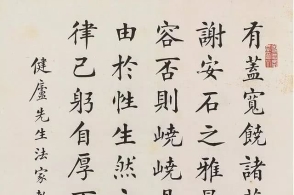 有蓋寬饒諸
謝安石之雅
容否則嶢嶢
由於性生然
律己躬自厚
健廬先生法家